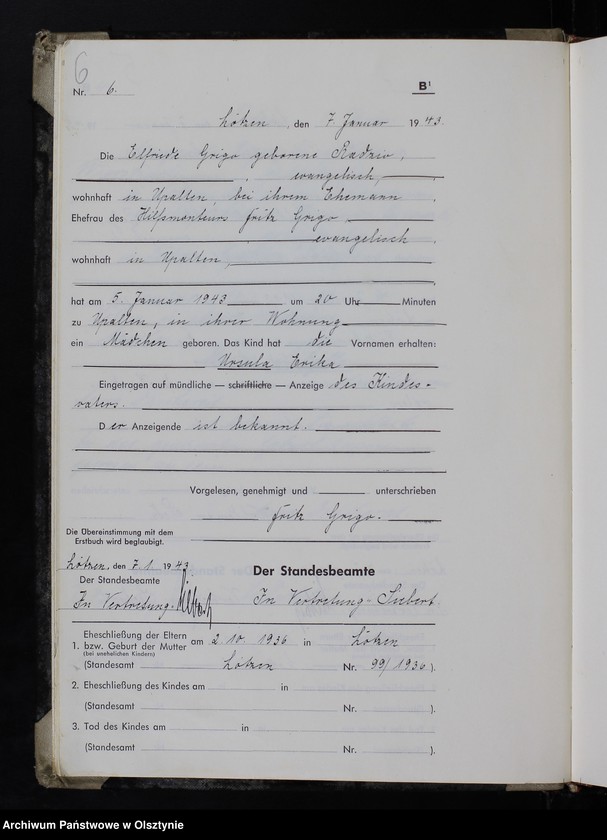 6
Nr. 6. B¹
Lötzen, den 7. Januar 1943.
Die Elfriede Grigo geborene Radzio,
evangelisch,
wohnhaft in Upalten, bei ihrem Ehemann
Ehefrau des Hilfsmonteurs Fritz Grigo
evangelisch
wohnhaft in Upalten,
hat am 5. Januar 1943 um 20 Uhr Minuten
zu Upalten, in ihrer Wohnung
ein Mädchen geboren. Das Kind hat die Vornamen erhalten:
Ursula Erika
Eingetragen auf mündliche — schriftliche — Anzeige des Kindes-
vaters.
Der Anzeigende ist bekannt.
Vorgelesen, genehmigt und unterschrieben
Fritz Grigo.
Die Übereinstimmung mit dem
Erstbuch wird beglaubigt.
Lötzen, den 7.1.1943.
Der Standesbeamte
Der Standesbeamte
In Vertretung. In Vertretung Siebert.
1. Eheschließung der Eltern
bzw. Geburt der Mutter am 2.10.1936 in Lötzen
(bei unehelichen Kindern)
(Standesamt Lötzen Nr. 99/1936).
2. Eheschließung des Kindes am in
(Standesamt Nr. ).
3. Tod des Kindes am in
(Standesamt Nr. ).
Archiwum Państwowe w Olsztynie